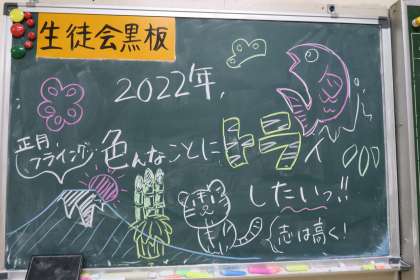 生徒会黒板
2022年、
正月
フライング
色んなことに
トライ
したいっ!!
志は高く!